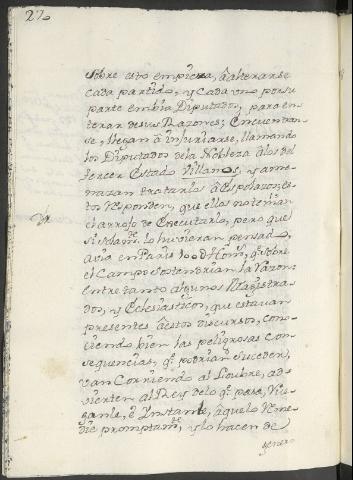 27
sobre esto empieza, â alterarse
cada partido, y cada uno por su
parte embia Diputados, para en-
terar de sus Razones; Encuentran
se, llegan â injuriarse, llamando
los Diputados de la Nobleza â los del
tercer Estado Villanos, y ame-
nazan tratarlos â Espolazos, es-
tos responden, que ellos no temian
charrofo de Executarlo, pero que
si lo huvieran pensado,
avia en Paris 100∂ Hom.s q.e sobre
el Campo Sostendrian la Razon:
Entre tanto algunos Magistra-
dos, y Eclesiasticos, que estavan
presentes â estos discursos, cono-
ciendo bien las peligrosas con-
sequencias, q.e podrian suceder,
van Corriendo al Loubre, ad-
vierten al Rey de lo q.e pasa, 
 ê Ynstante, â que lo Reme-
die promptam.te, y lo hacen de
gener